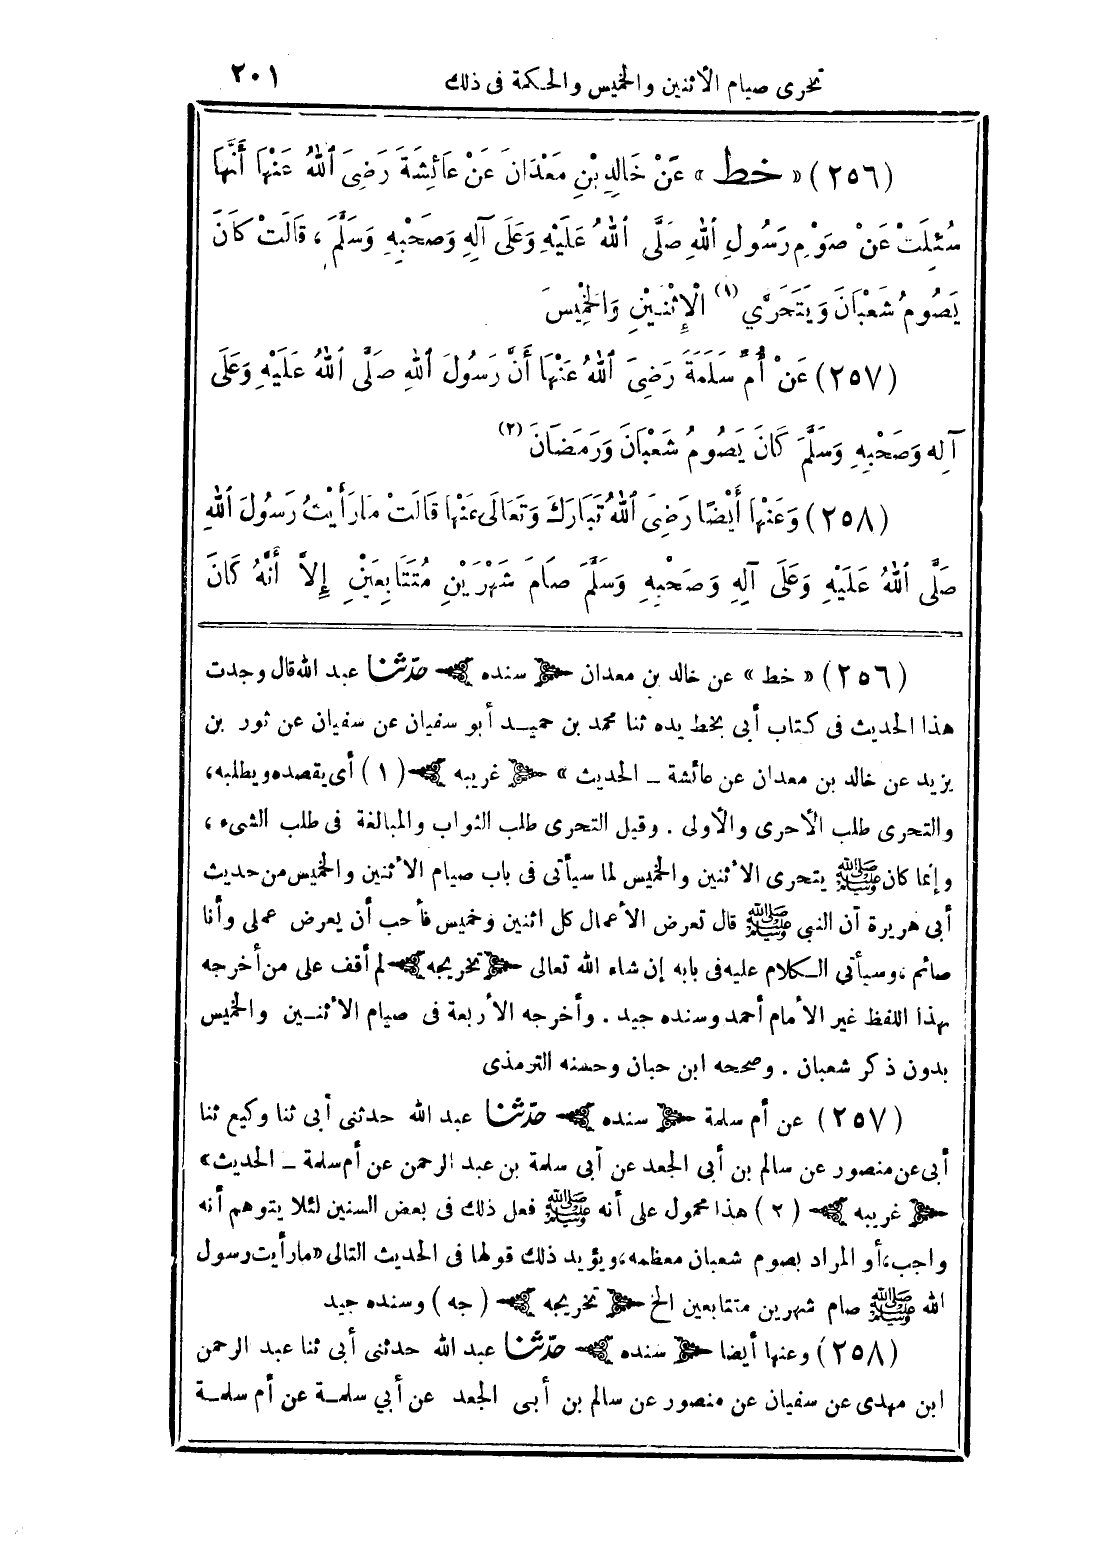 تحرى صيام الأثنين والخميس والحكمة فى ذلك ٢٠١
(٢٥٦) « خط » عَنْ خَالِدِ بْنِ مَعْدَانَ عَنْ عَائِشَةَ رَضِىَ اللهُ عَنْهَا أَنَّهَا
سُئِلَتْ عَنْ صَوْمِ رَسُولِ اللهِ صَلَّى اللهُ عَلَيْهِ وَعَلَى آلِهِ وَصَحْبِهِ وَسَلَّمَ ، قَالَتْ كَانَ
يَصُومُ شَعْبَانَ وَيَتَحَرَّي (١) الْإِثْنَيْنِ وَالْخَمِيسَ
(٢٥٧) عَنْ أُمِّ سَلَمَةَ رَضِىَ اللهُ عَنْهَا أَنَّ رَسُولَ اللهِ صَلَّى اللهُ عَلَيْهِ وَعَلَى
آلِهِ وَصَحْبِهِ وَسَلَّمَ كَانَ يَصُومُ شَعْبَانَ وَرَمَضَانَ (٢)
(٢٥٨) وَعَنْهَا أَيْضًا رَضِىَ اللهُ تَبَارَكَ وَتَعَالَى عَنْهَا قَالَتْ مَا رَأَيْتُ رَسُولَ اللهِ
صَلَّى اللهُ عَلَيْهِ وَعَلَى آلِهِ وَصَحْبِهِ وَسَلَّمَ صَامَ شَهْرَيْنِ مُتَتَابِعَيْنِ إِلاَّ أَنَّهُ كَانَ
(٢٥٦) « خط » عن خالد بن معدان ﴿ سنده ﴾ حدّثنا عبد الله قال وجدت
هذا الحديث فى كتاب أبى بخط يده ثنا محمد بن حميد أبو سفيان عن سفيان عن ثور بن
يزيد عن خالد بن معدان عن عائشة ــ الحديث » ﴿ غريبه ﴾ (١) أى يقصده ويطلبه،
والتحرى طلب الأحرى والأولى . وقيل التحرى طلب الثواب والمبالغة فى طلب الشىء ،
وإنما كان ﷺ يتحرى الاثنين والخميس لما سيأتى فى باب صيام الاثنين والخميس من حديث
أبى هريرة آن النبى ﷺ قال تعرض الأعمال كل اثنين وخميس فأحب أن يعرض عملى وأنا
صائم ، وسيأتي الكلام عليه فى بابه إن شاء الله تعالى ﴿ تخريجه ﴾ لم أقف على من أخرجه
بهذا اللفظ غير الأمام أحمد وسنده جيد . وأخرجه الأربعة فى صيام الأثنين والخميس
بدون ذكر شعبان . وصححه ابن حبان وحسنه الترمذى
(٢٥٧) عن أم سلمة ﴿ سنده ﴾ حدّثنا عبد الله حدثنى أبى ثنا وكيع ثنا
أبى عن منصور عن سالم بن أبى الجعد عن أبى سلمة بن عبد الرحمن عن أم سلمة ــ الحديث »
﴿ غريبه ﴾ (٢) هذا محمول على أنه ﷺ فعل ذلك فى بعض السنين لئلا يتوهم أنه
واجب، أو المراد بصوم شعبان معظمه، ويؤيد ذلك قولها فى الحديث التالى « مارأيت رسول
الله ﷺ صام شهرين متتابعين الخ ﴿ تخريجه ﴾ (جه) وسنده جيد
(٢٥٨) وعنها أيضا ﴿ سنده ﴾ حدّثنا عبد الله حدثنى أبى ثنا عبد الرحمن
ابن مهدى عن سفيان عن منصور عن سالم بن أبى الجعد عن أبي سلمة عن أم سلمة